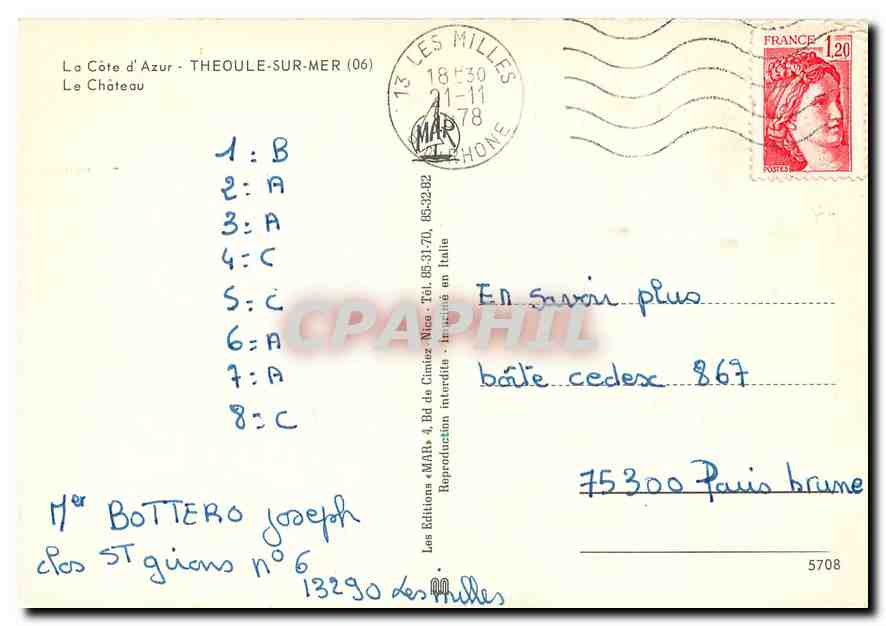 La Côte d'Azur - THEOULE-SUR-MER (06)
Le Château
13 LES MILLES
18H30
21-11
78
RHONE
MAR
FRANCE
1,20
POSTES
1: B
2: A
3: A
4: C
5: C
6: A
7: A
8: C
Mer BOTTERO Joseph
clos ST girons n° 6
13290 Les milles
Les Editions «MAR» 4, Bd de Cimiez - Nice - Tél. 85-31-70, 85-32-82
Reproduction interdite - Imprimé en Italie
En savoir plus
boîte cedex 867
75300 Paris brune
5708
CPAPHIL